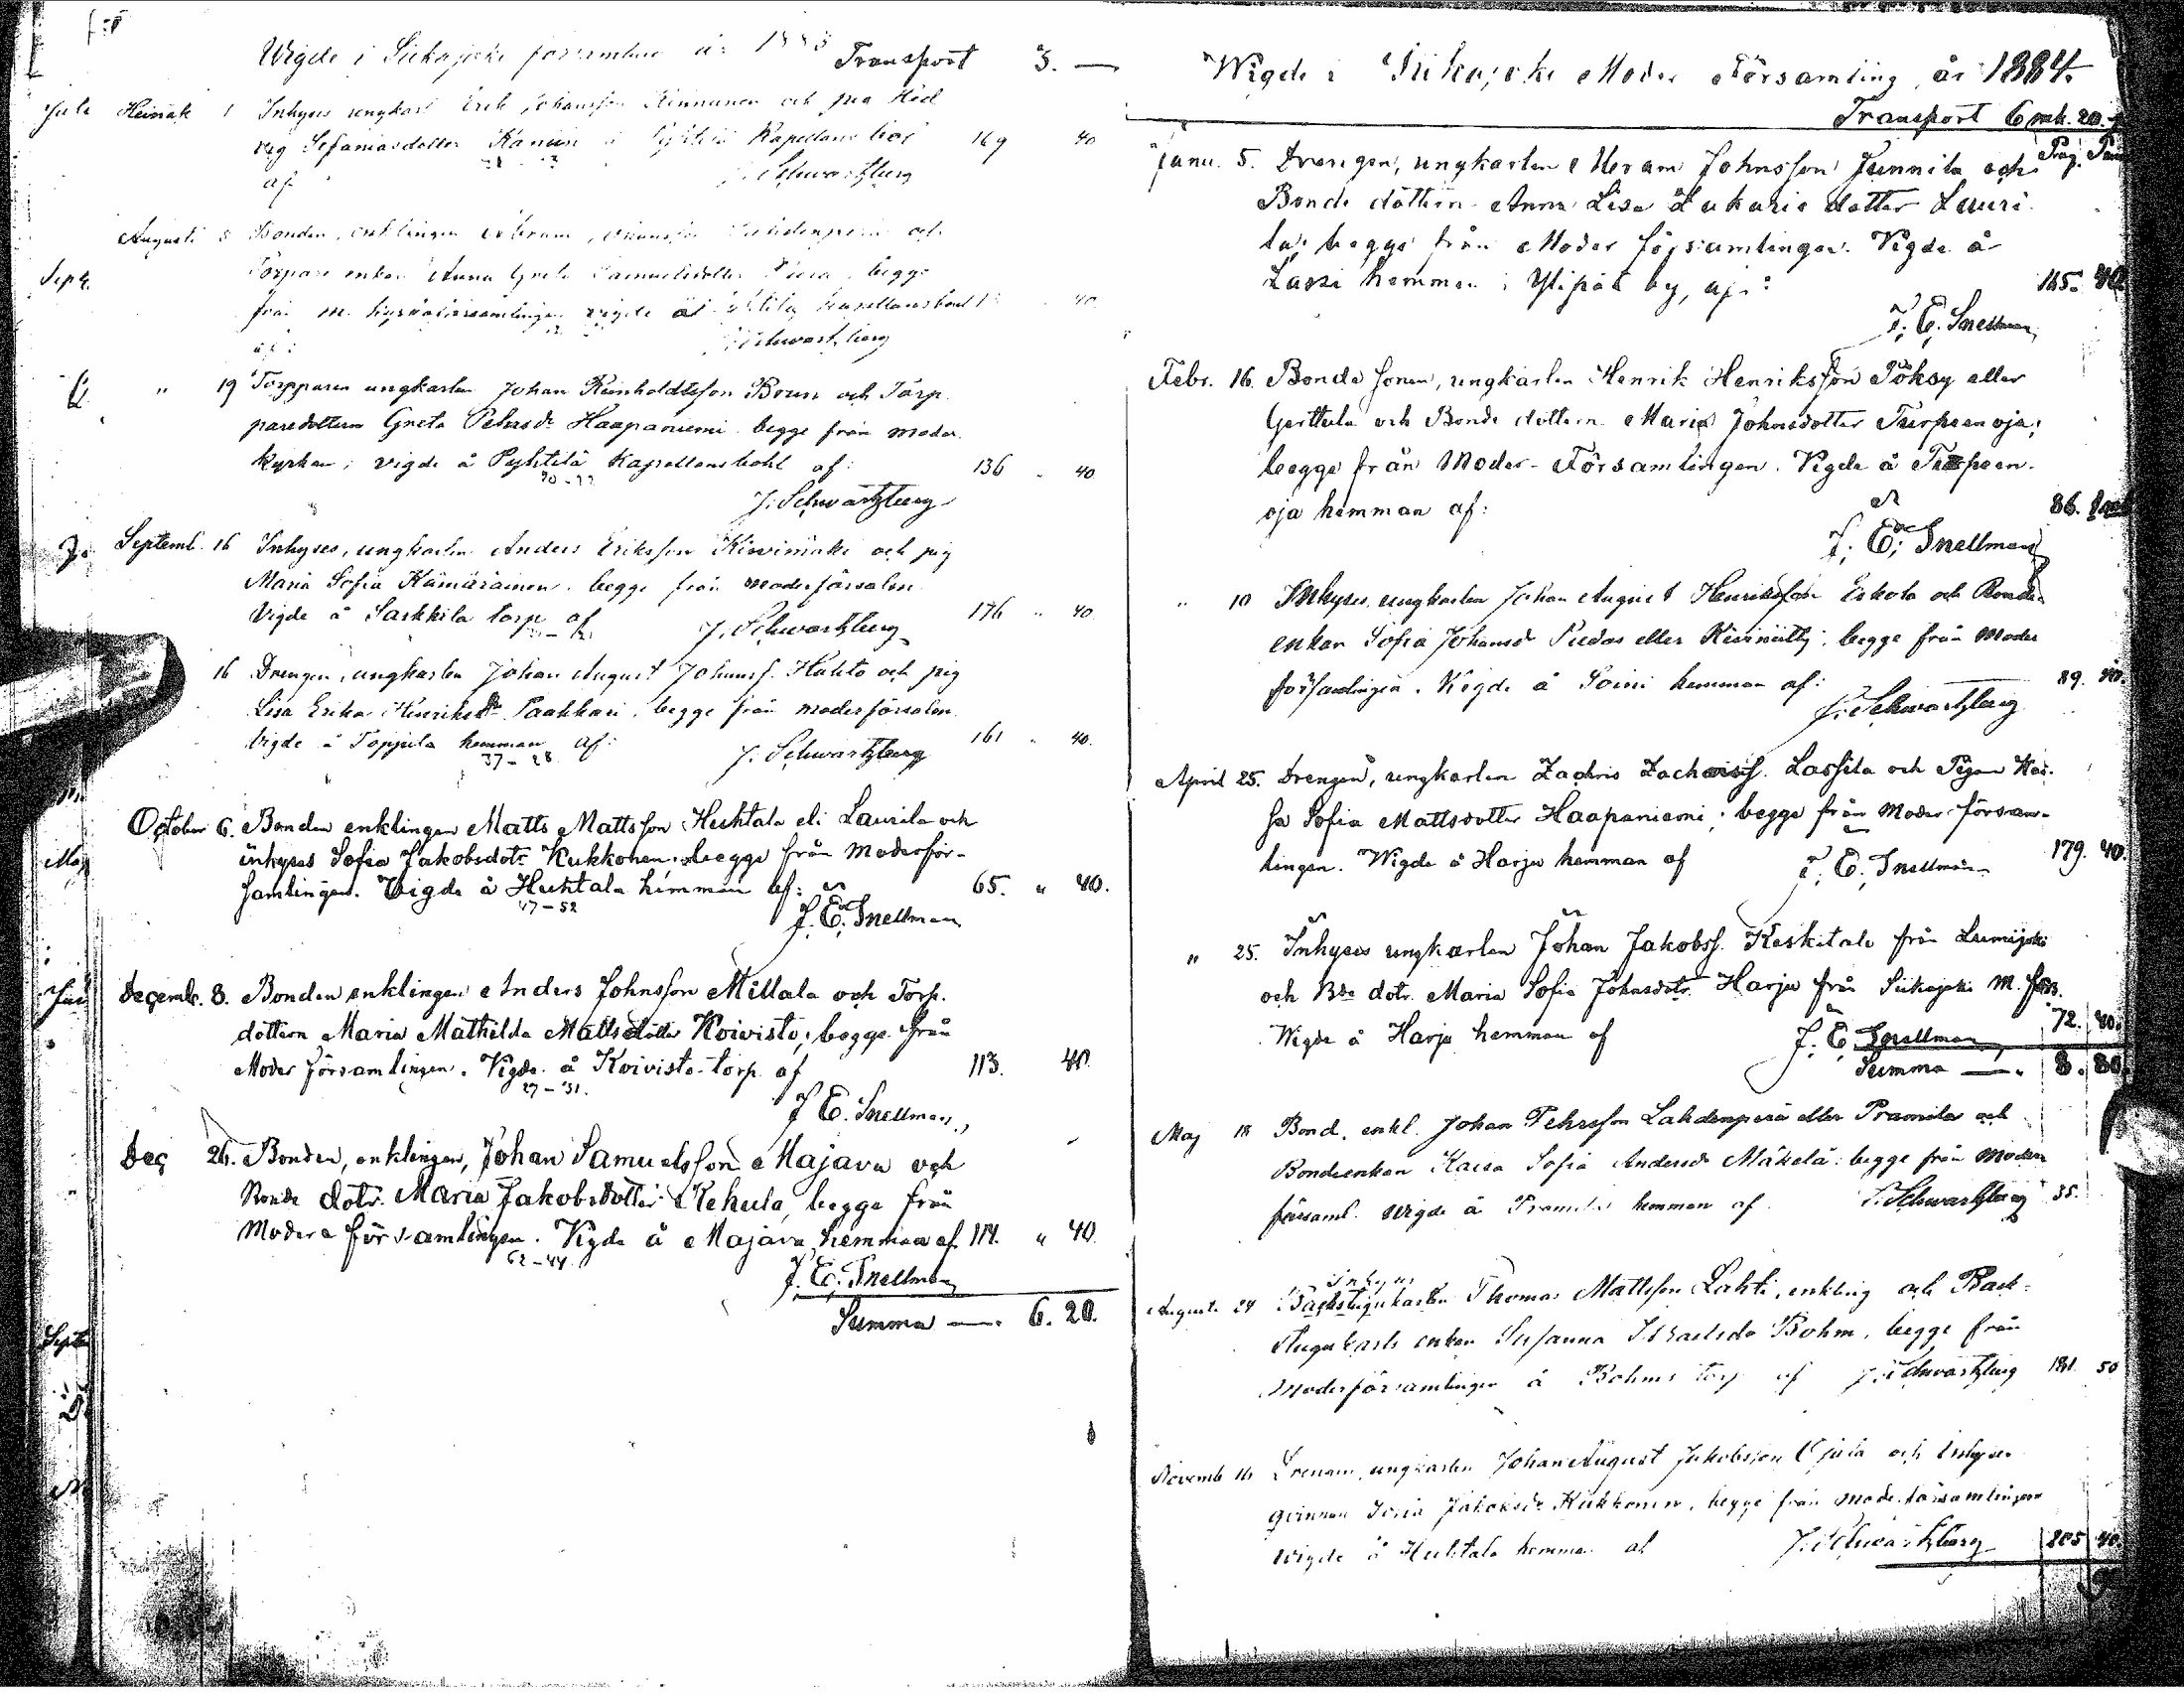 Wigde i Siikajoki församling år 1883 Transport 3. —
Juli Heinäk 1 Inhyses ungkarl Erik Johansson Kinnunen och pig Hed
vig Sefaniasdotter Kaniin å Pyhtilä Kapellans bol 169 40
af J. Schwartzberg
Augusti 5 Bonden, enklingen Abram Lahdenperä och
Torpare enkan Anna Greta Samuelsdotter begge
från m. kyrkoförsamlingen vigde å Pyhtilä kapellansbohl 40
af: Schwartzberg
" 19 Torpparen ungkarlen Johan Reinholdtsson Brun och Torp
paredottern Greta Pehrsdr Haapaniemi begge från moder
kyrkan; vigde å Pyhtilä Kapellansbohl af: 136 - 40
J. Schwartzberg
Septemb. 16 Inhyses, ungkarlen Anders Eriksson Kivimäki och pig
Maria Sofia Kämäräinen. begge från moderförsaln.
Vigde å Sarkkila torp af J. Schwartzberg 176 " 40.
16 Drengen, ungkarlen Johan August Johanss. Huhto och pig
Lisa Erika Henriksdr Paakkari, begge från moderförsaln.
Vigde å Toppila hemman af: J. Schwartzberg 161 " 40.
37 - 28
October 6. Bonden enklingen Matts Mattsson Huhtala eli. Laurila och
inhyses Sofia Jakobsdotr Kukkonen. begge från Moderför-
samlingen. Vigde å Huhtala hemman af: 65. " 40.
47 - 52
J. E. Snellman
Decemb. 8. Bonden enklingen Anders Johnsson Millala och Torp.
dottern Maria Mathilda Mattsdotter Koivisto; begge från
Moder församlingen. Vigde å Koivisto-torp af 113. 40.
27 - 31.
J. E. Snellman
Dec 26. Bonden, enklingen, Johan Samuelsson Majava och
Bonde dotr. Maria Jakobsdotter Kehula, begge från
Modera församlingen. Vigde å Majava hemman af 114. " 40.
62 - 44.
J. E. Snellman
Summa —. 6. 20.
Wigde i Siikajoki Moder Församling, år 1884.
Transport 6 mk. 20. p
Janu. 5. Drengen, ungkarlen Abram Johnsson Junnila och
Bonde dottern Anna Lisa Zakaria dotter Lauri
la, begge från Moder församlingen. Vigde å
Lassi hemman i Ylipää by, af: 165. 40
J. E. Snellman
Febr. 16. Bonde sonen, ungkarlen Henrik Henriksson Pöksy eller
Gerttula och Bonde dottern Maria Johnsdotter Turpeenoja;
begge från Moder-Församlingen. Vigde å Turpeen-
oja hemman af: 86.
J. E. Snellman
" 10 Inhyses, ungkarlen Johan August Henriksson Eskola och Bonde
enkan Sofia Johansd Pudas eller Kiviniitty; begge från moder
församlingen. Vigde å Soini hemman af: 89. 40.
J. Schwartzberg
April 25. Drengen, ungkarlen Zachris Zachariss. Lassila och Pigan Kai-
sa Sofia Mattsdotter Haapaniemi; begge från Moder försam-
lingen. Wigde å Harju hemman af J. E. Snellman 179. 40.
" 25. Inhyses ungkarlen Johan Jakobss. Keskitalo från Lumijoki
och Bde dotr. Maria Sofia Johnsdotr Harju från Siikajoki M. förs.
Wigde å Harju hemman af J. E. Snellman 72. 40.
Summa —. 8. 80.
Maj 18 Bond. enkl. Johan Pehrsson Lahdenperä eller Pramila och
Bondeenkan Kaisa Sofia Andersdr Mäkelä: begge från moder
församl. Wigde å Pramila hemman af J. Schwartzberg 35.
Inhyses
Augusti 24 Backstugukarlen Thomas Mattsson Lahti, enkling och Back-
stugukarls enkan Susanna Israelsdr Bohm, begge från
Moderförsamlingen å Bohms torp af J. Schwartzberg 181. 50
Novemb 16 Drengen, ungkarlen Johan August Jakobsson Ojala och Inhyses
qvinnan Sofia Jakobsdr Kukkonen, begge från moderförsamlingen
Wigde å Huhtala hemman af J. Schwartzberg 205 40.